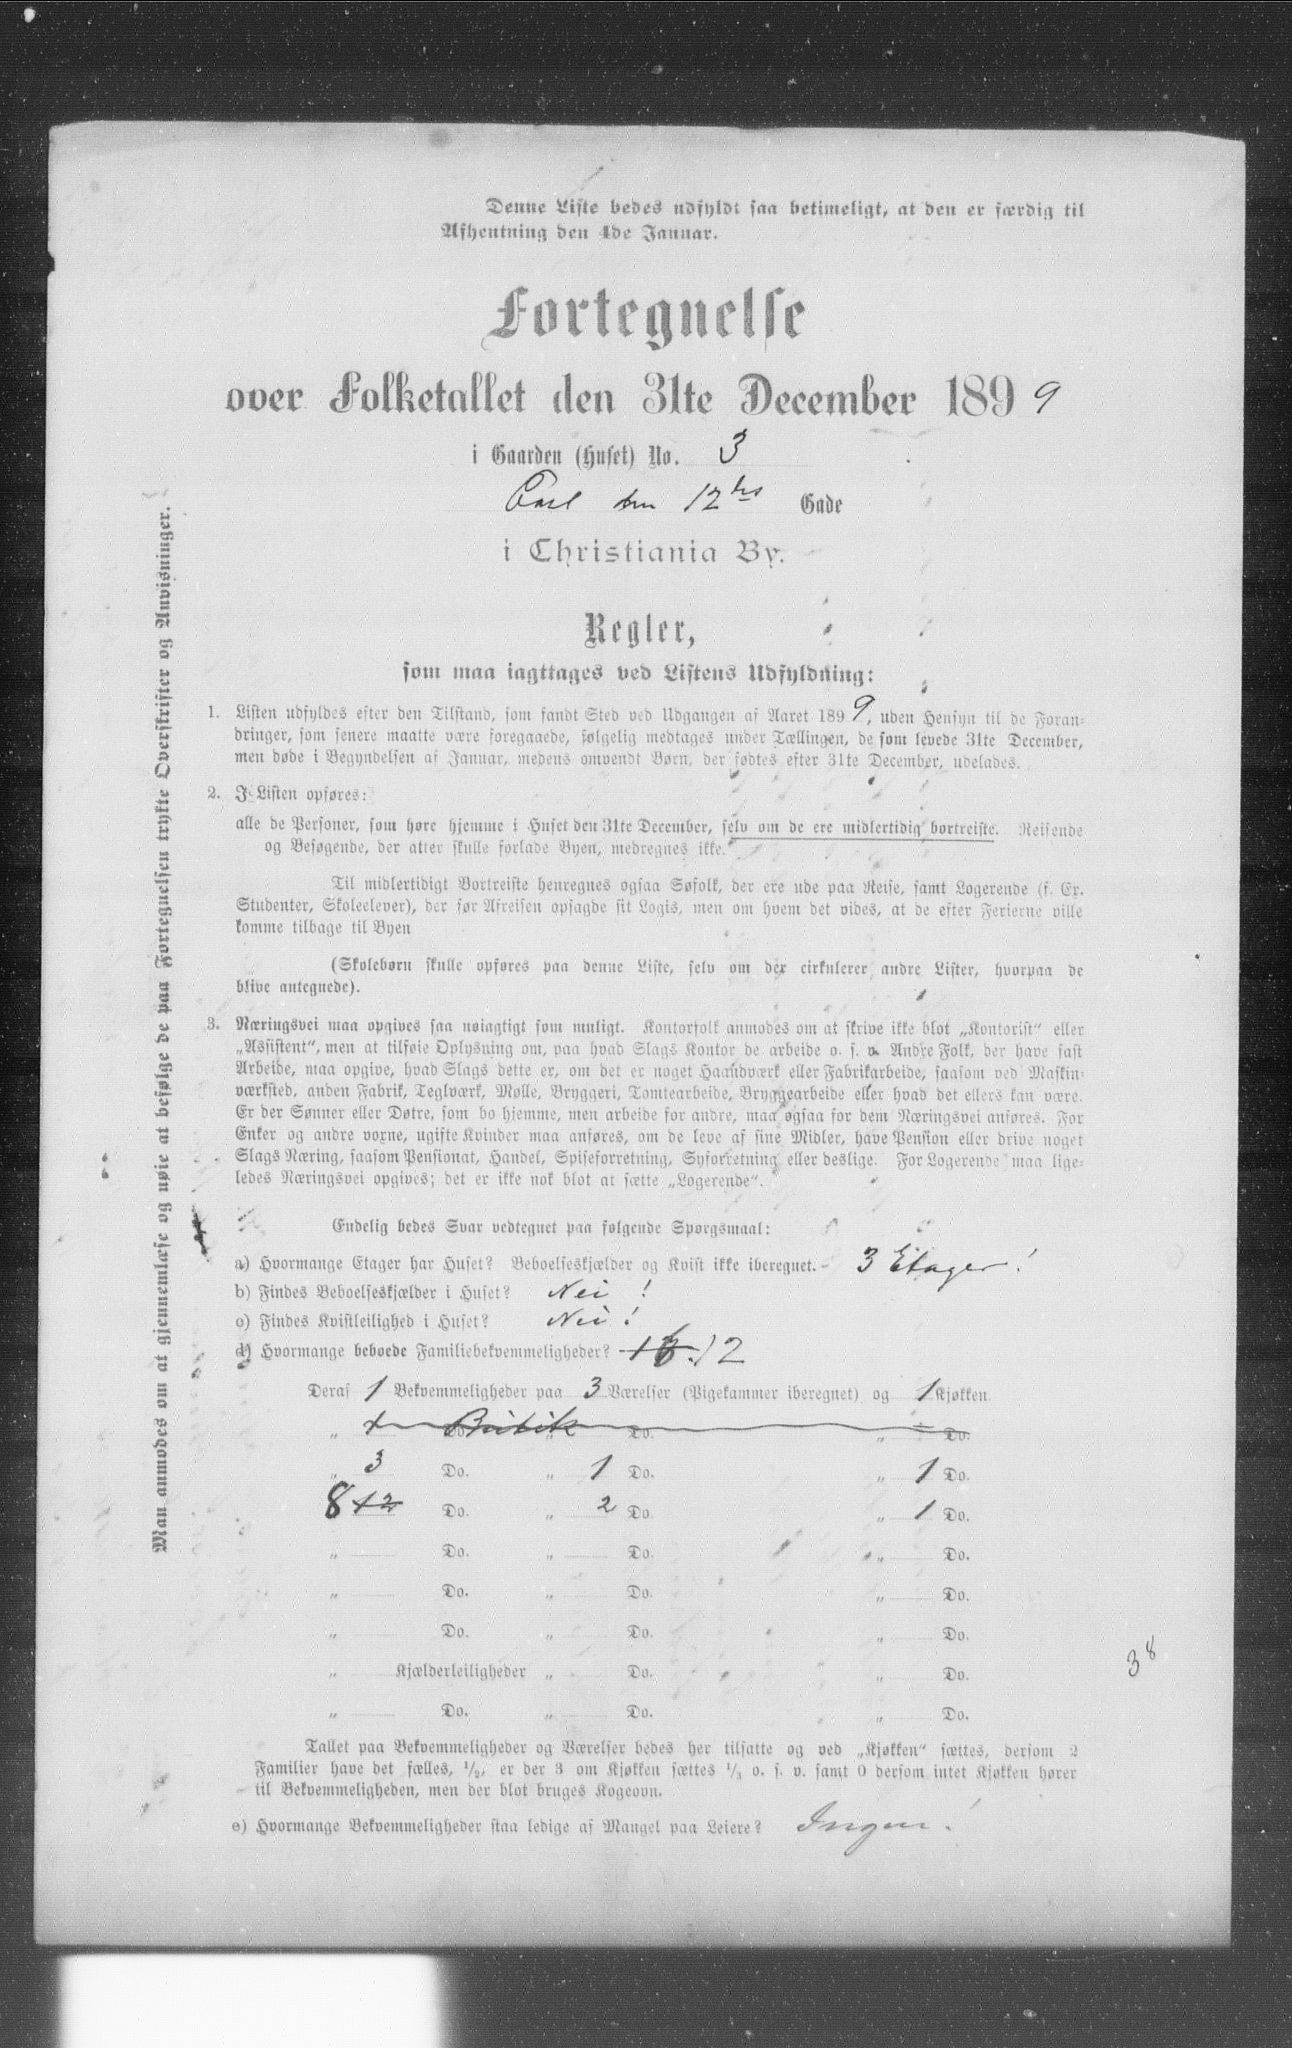 Denne Liste bedes udfyldt saa betimeligt, at den er færdig til
Afhentning den 4de Januar.
Fortegnelse
over Folketallet den 31te December 1899
i Gaarden (Huset) No. 3
Carl den 12tes Gade
i Christiania By.
Regler,
som maa iagttages ved Listens Udfyldning:
1. Listen udfyldes efter den Tilstand, som fandt Sted ved Udgangen af Aaret 1899, uden Hensyn til de Foran-
dringer, som senere maatte være foregaaede, følgelig medtages under Tællingen, de som levede 31te December,
men døde i Begyndelsen af Januar, medens omvendt Børn, der fødtes efter 31te December, udelades.
2. I Listen opføres:
alle de Personer, som høre hjemme i Huset den 31te December, selv om de ere midlertidig bortreiste. Reisende
og Besøgende, der atter skulle forlade Byen, medregnes ikke.
Til midlertidigt Bortreiste henregnes ogsaa Søfolk, der ere ude paa Reise, samt Logerende (f. Ex.
Studenter, Skoleelever), der før Afreisen opsagde sit Logis, men om hvem det vides, at de efter Ferierne ville
komme tilbage til Byen
(Skolebørn skulle opføres paa denne Liste, selv om der cirkulerer andre Lister, hvorpaa de
blive antegnede).
3. Næringsvei maa opgives saa nøiagtigt som muligt. Kontorfolk anmodes om at skrive ikke blot „Kontorist“ eller
„Assistent“, men at tilføie Oplysning om, paa hvad Slags Kontor de arbeide o. s. v. Andre Folk, der have fast
Arbeide, maa opgive, hvad Slags dette er, om det er noget Haandværk eller Fabrikarbeide, saasom ved Maskin-
værksted, anden Fabrik, Teglværk, Mølle, Bryggeri, Tomtearbeide, Bryggearbeide eller hvad det ellers kan være.
Er der Sønner eller Døtre, som bo hjemme, men arbeide for andre, maa ogsaa for dem Næringsvei anføres. For
Enker og andre voxne, ugifte Kvinder maa anføres, om de leve af sine Midler, have Pension eller drive noget
Slags Næring, saasom Pensionat, Handel, Spiseforretning, Syforretning eller deslige. For Logerende maa lige-
ledes Næringsvei opgives; det er ikke nok blot at sætte „Logerende“.
Endelig bedes Svar vedtegnet paa følgende Spørgsmaal:
a) Hvormange Etager har Huset? Beboelseskjælder og Kvist ikke iberegnet. 3 Etager!
b) Findes Beboelseskjælder i Huset? Nei!
c) Findes Kvistleilighed i Huset? Nei!
d) Hvormange beboede Familiebekvemmeligheder? 12
Deraf 1 Bekvemmeligheder paa 3 Værelser (Pigekammer iberegnet) og 1 Kjøkken
„ Do. Butik „ Do. „ Do.
„ 3 Do. „ 1 Do. „ 1 Do.
8 12 Do. „ 2 Do. „ 1 Do.
„ Do. „ Do. „ Do.
„ Do. „ Do. „ Do.
„ Do. „ Do. „ Do.
„ Kjælderleiligheder „ Do. „ Do.
„ Do. „ Do. „ Do.
38
Tallet paa Bekvemmeligheder og Værelser bedes her tilsatte og ved „Kjøkken“ sættes, dersom 2
Familier have det fælles, 1/2, er der 3 om Kjøkken sættes 1/3 o. s. v. samt 0 dersom intet Kjøkken hører
til Bekvemmeligheden, men der blot bruges Kogeovn.
e) Hvormange Bekvemmeligheder staa ledige af Mangel paa Leiere? Ingen!
Man anmodes om at gjennemlæse og nøie at besjøge de paa Fortegnelsen trykte Overskrifter og Anvisninger.